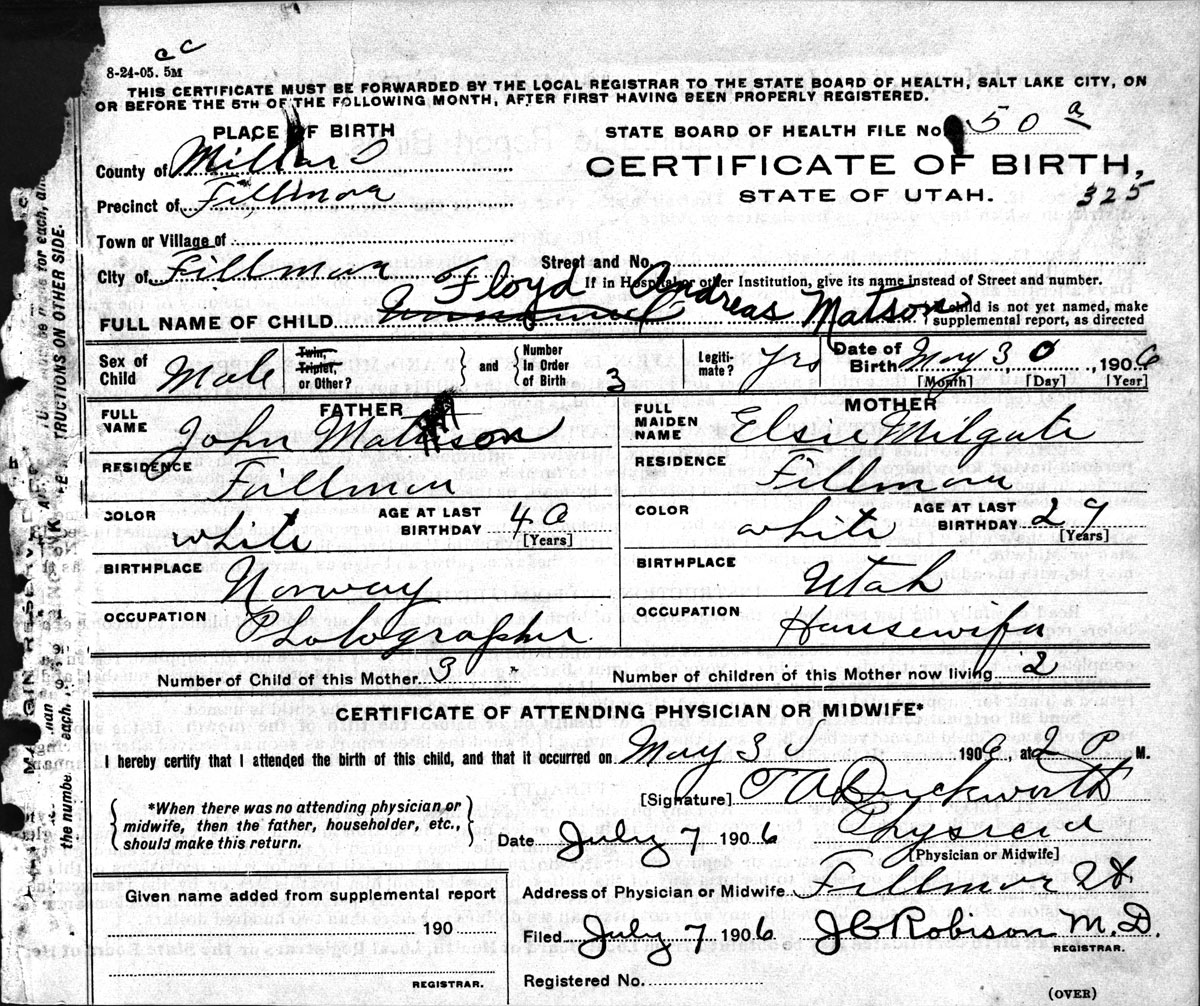 8-24-05. 5M
THIS CERTIFICATE MUST BE FORWARDED BY THE LOCAL REGISTRAR TO THE STATE BOARD OF HEALTH, SALT LAKE CITY, ON
OR BEFORE THE 5TH OF THE FOLLOWING MONTH, AFTER FIRST HAVING BEEN PROPERLY REGISTERED.
PLACE OF BIRTH
STATE BOARD OF HEALTH FILE No. 50 a
County of Millard
CERTIFICATE OF BIRTH,
Precinct of Fillmore
STATE OF UTAH. 325
Town or Village of
City of Fillmore Street and No.
If in Hospital or other Institution, give its name instead of Street and number.
FULL NAME OF CHILD Floyd Andreas Matson
If child is not yet named, make supplemental report, as directed
Sex of Child Male Twin, Triplet, or Other? } and { Number in Order of Birth 3 Legitimate? Yes Date of Birth May 30, 1906
[Month] [Day] [Year]
FATHER MOTHER
FULL NAME John Mattson FULL MAIDEN NAME Elsie Milgate
RESIDENCE Fillmore RESIDENCE Fillmore
COLOR white AGE AT LAST BIRTHDAY 40 [Years] COLOR white AGE AT LAST BIRTHDAY 29 [Years]
BIRTHPLACE Norway BIRTHPLACE Utah
OCCUPATION Photographer. OCCUPATION Housewife
Number of Child of this Mother 3 Number of children of this Mother now living 2
CERTIFICATE OF ATTENDING PHYSICIAN OR MIDWIFE*
I hereby certify that I attended the birth of this child, and that it occurred on May 30 1906, at 2 P M.
[Signature] T A Duckworth
*When there was no attending physician or
midwife, then the father, householder, etc.,
should make this return.
Date July 7 1906 Physician
[Physician or Midwife]
Address of Physician or Midwife Fillmore Ut
Filed July 7 1906 J C Robison M.D.
REGISTRAR.
Registered No.
Given name added from supplemental report
190
REGISTRAR.
(OVER)
TRUCTIONS ON OTHER SIDE.